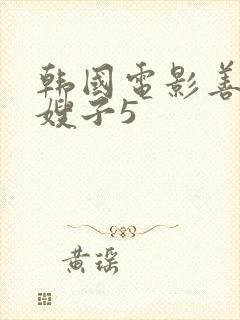 韩國電影善
嫂子5
黄瑶